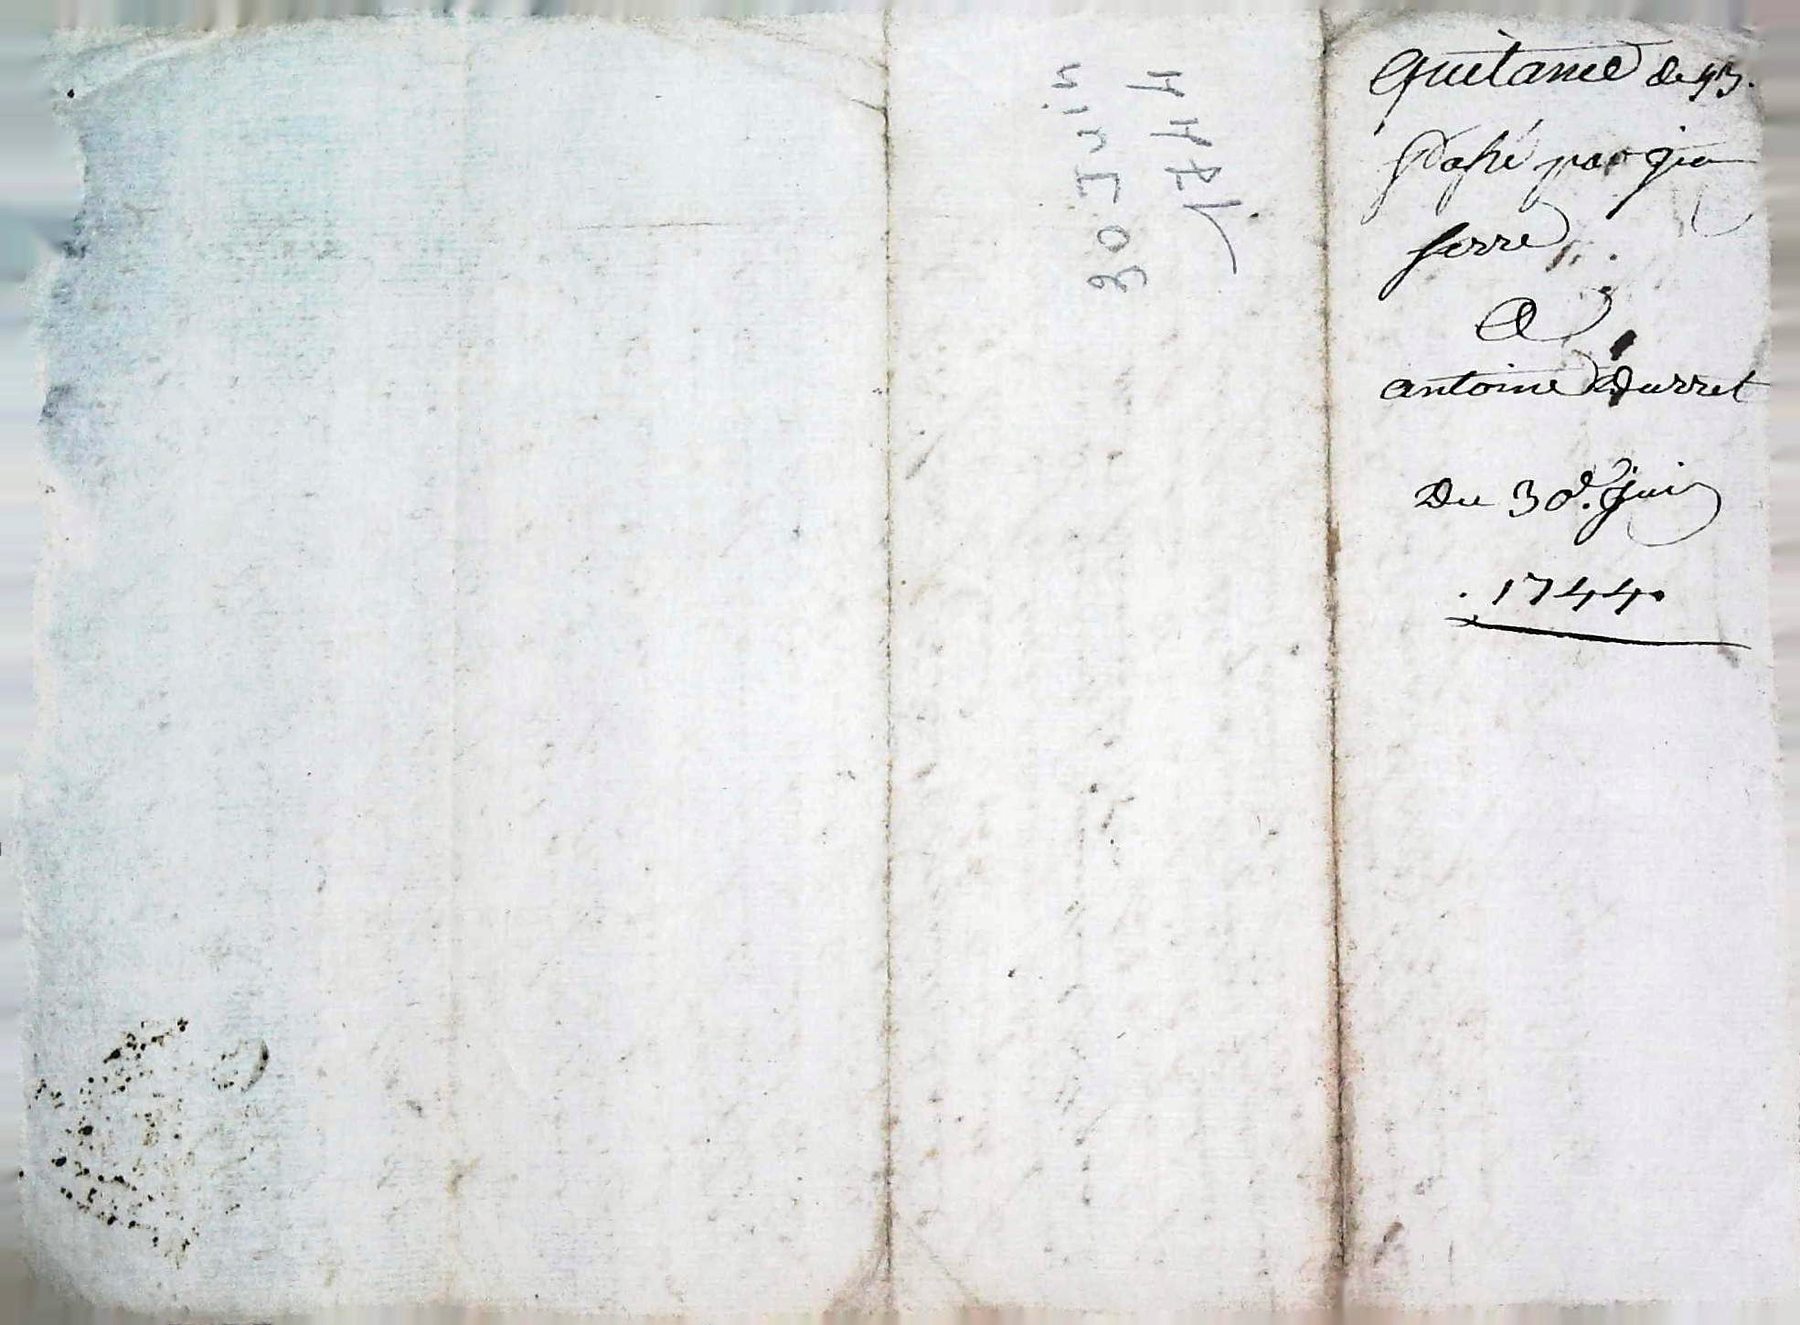 quitance de 45.
passé par jean
serre
A
antoine Durret
Du 30e. Juin
.1744.
30 Juin
1744